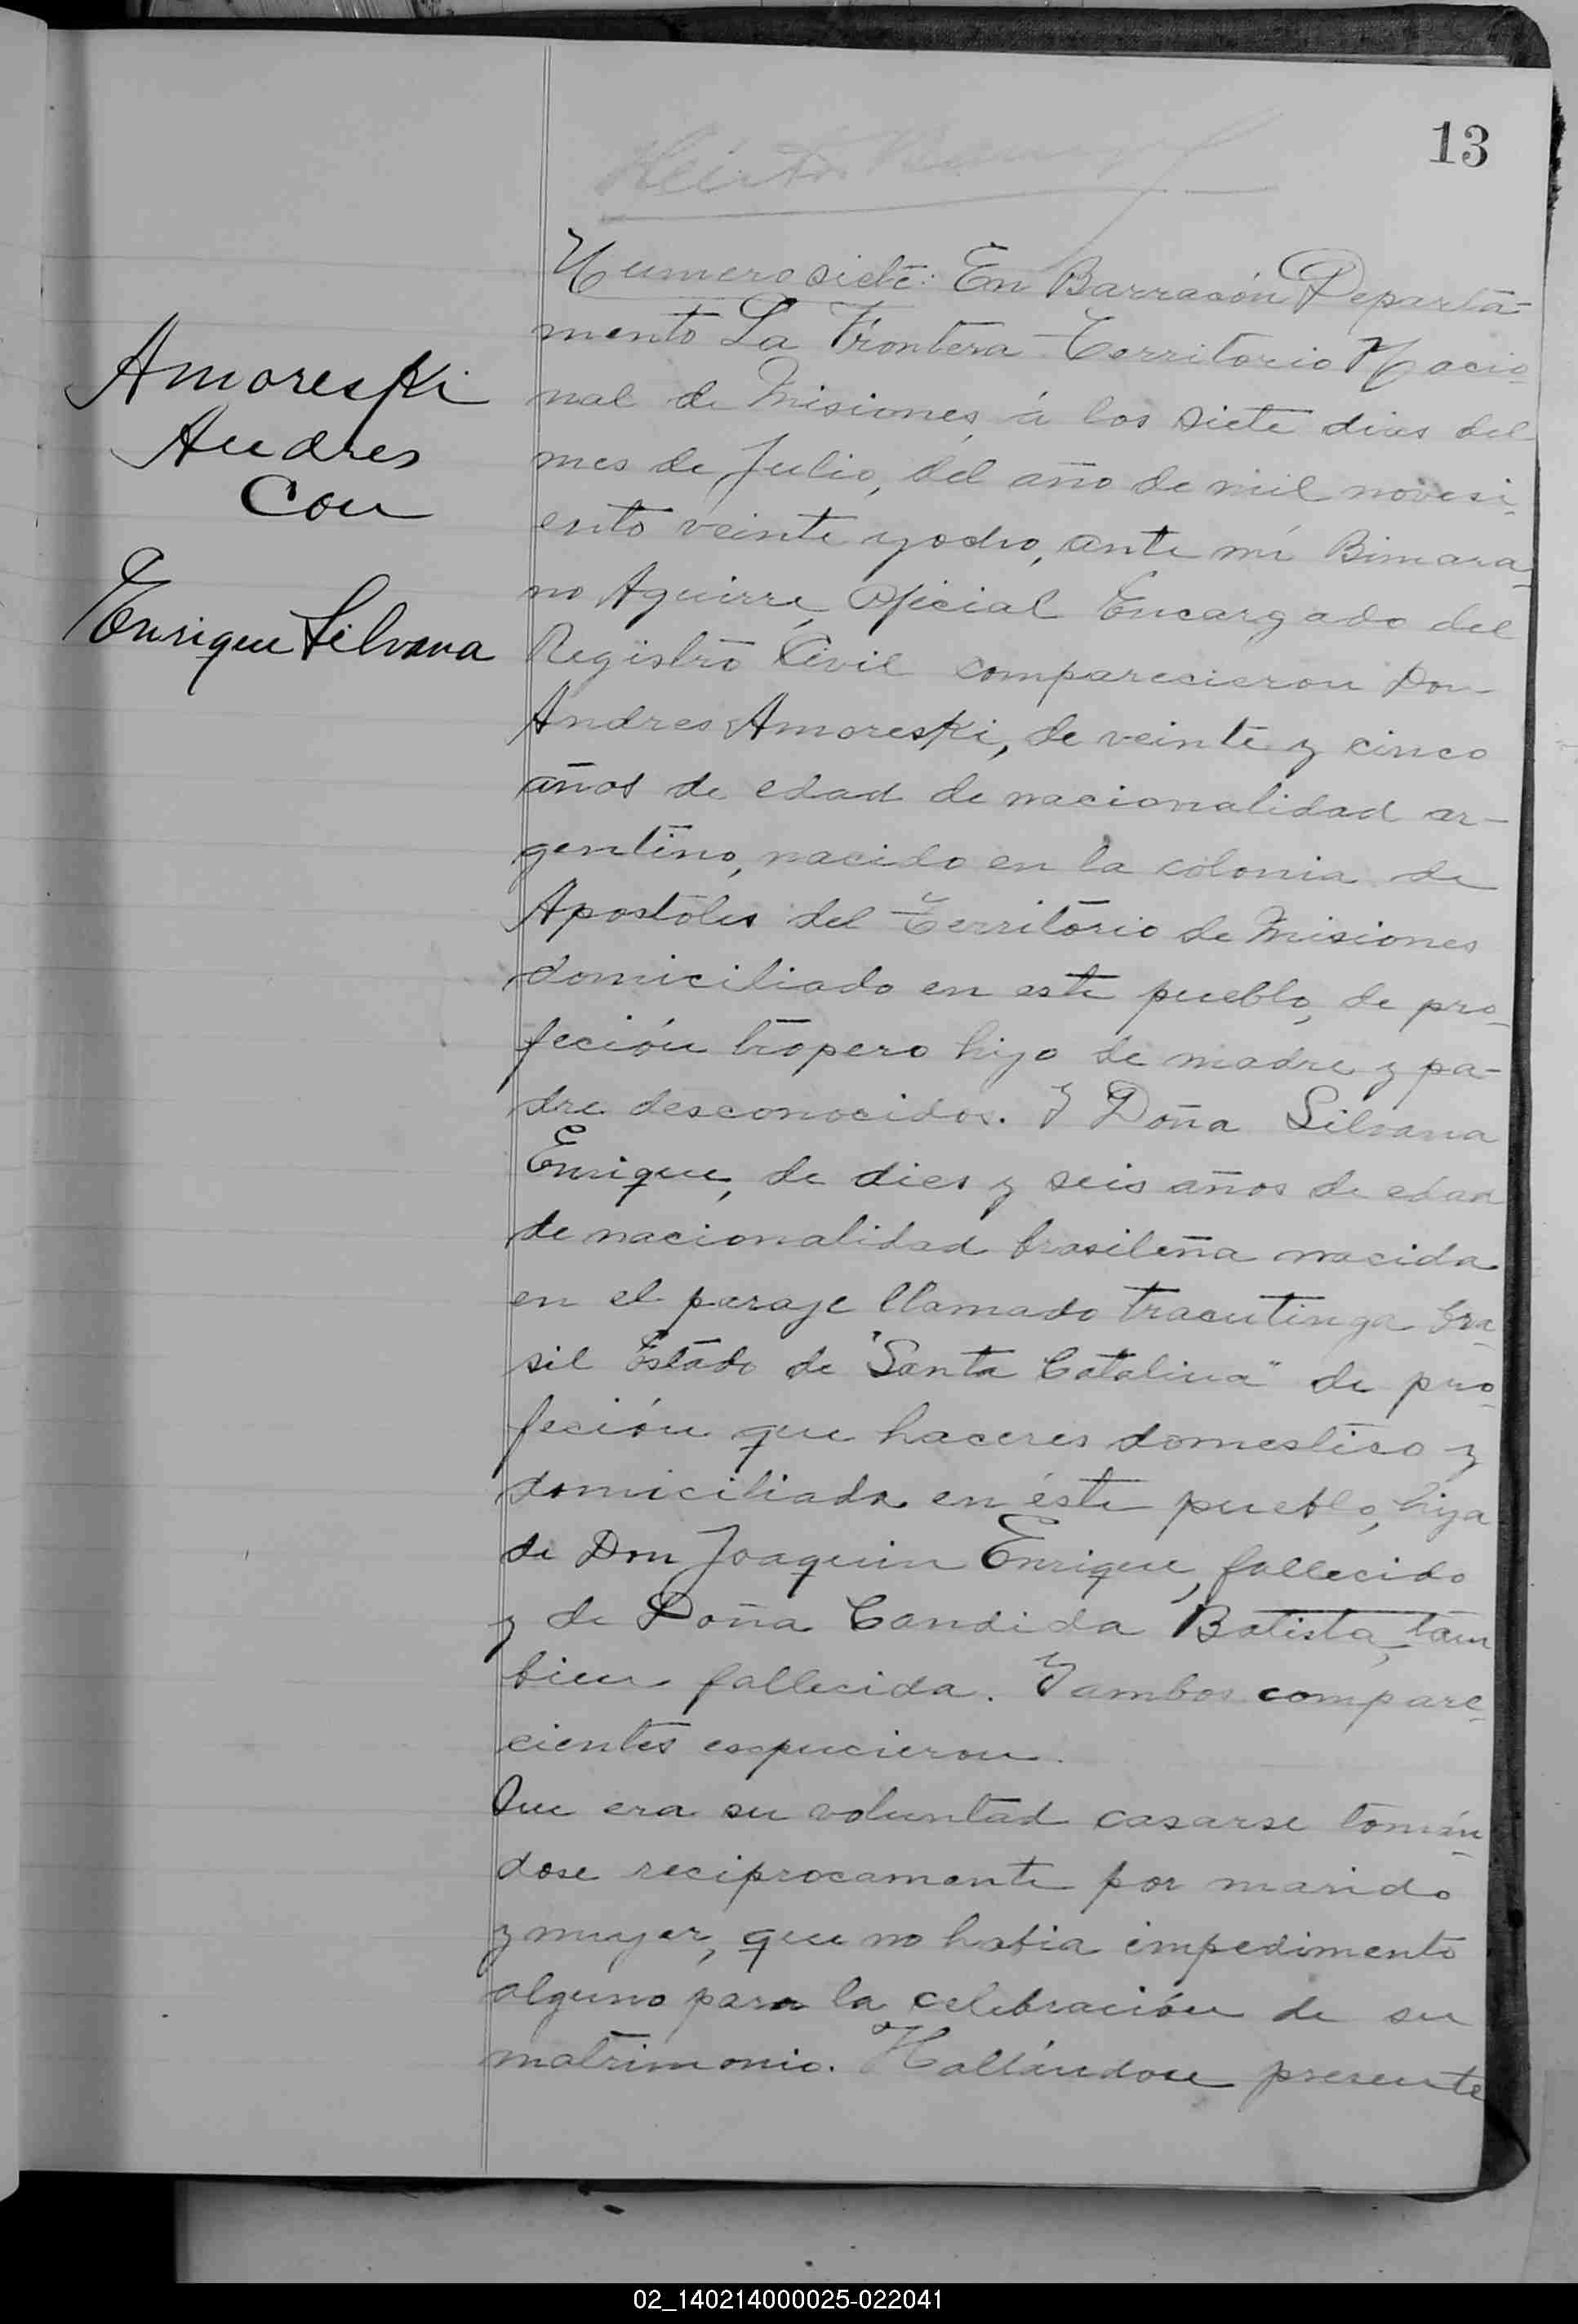 13
Numero siete: En Barracón Departa-
mento La Frontera Territorio Nacio-
nal de Misiones, á los siete dias del
mes de Julio, del año de mil novesi-
ento veinte y ocho, ante mí Bimara-
no Aguirre, Oficial Encargado del
Registro Civil comparecieron Don
Andres Amoreski, de veinte y cinco
años de edad de nacionalidad ar-
gentino, nacido en la colonia de
Apostoles del Territorio de Misiones
domiciliado en este pueblo, de pro-
feción tropero hijo de madre y pa-
dre desconocidos. Y Doña Silvana
Enrique, de dies y seis años de edad
de nacionalidad brasileña nacida
en el paraje llamado tracutinga bra-
sil Estado de "Santa Catalina" de pro-
feción que haceres domestico y
domiciliada en éste pueblo, hija
de Don Joaquin Enrique, fallecido
y de Doña Candida Batista, tam
bien fallecida. Y ambos compare-
cientes espucieron.
Que era su voluntad casarse tomán-
dose reciprocamente por marido
y mujer, que no habia impedimento
alguno para la celebración de su
matrimonio. Hallándose presente
Amoreski
Andres
Con
Enrique Silvana
02_140214000025-022041